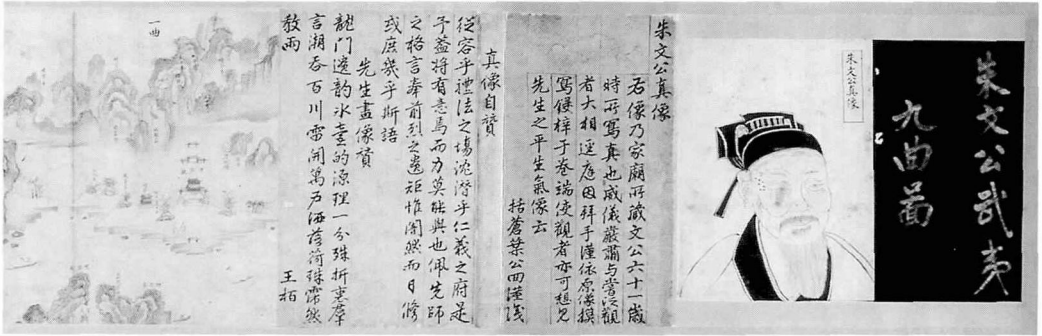 朱文公武夷
九曲啚
朱文公真像
朱文公真像
右像乃家廟所藏文公六十一歲
時所寫真也威儀嚴肅与常泛觀
者大相逕庭因拜手謹依原像摸
寫鋟梓于卷端使觀者亦可想見
先生之平生氣像云
括蒼葉公回謹識
真像自贊
從容乎禮法之場沈潛乎仁義之府是
予蓋將有意焉而力莫能與也佩先師
之格言奉前烈之遺矩惟闇然而日修
或庶幾乎斯語
先生畫像贊
龍门遺韵氷壺的源理一分殊折衷羣
言潮吞百川雷開萬戶洒落荷珠霈然
教雨
王柏
一曲